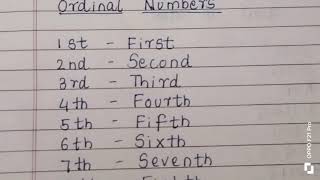 Ordinal Numbers
1st - First
2nd - Second
3rd - Third
4th - Fourth
5th - Fifth
6th - Sixth
7th - Seventh
OPPO F21 Pro